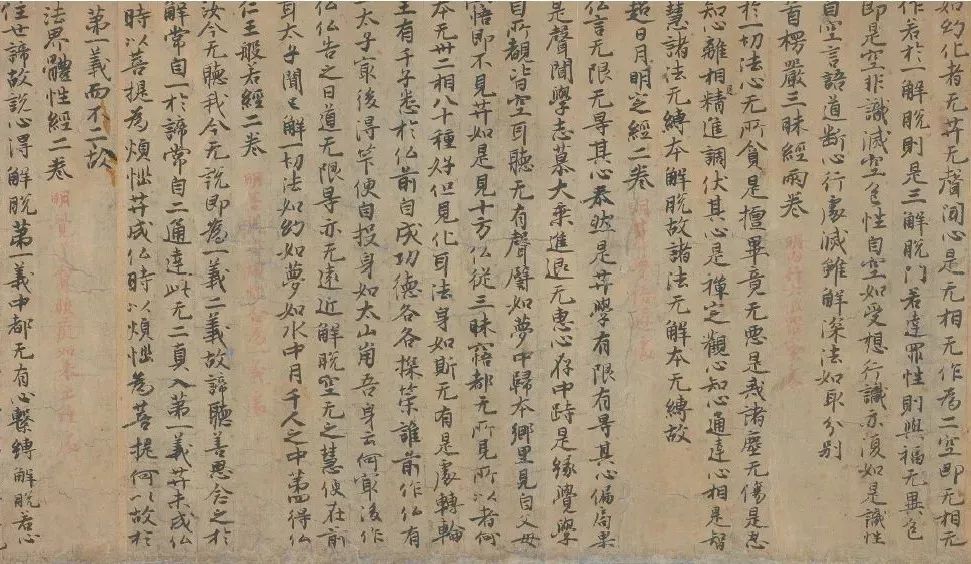 如約化者无𦬇无聲聞心是无相无作為二空即无相无
作若於一解脫則是三解脫門若達罪性則與福无異色
即是空非識滅空色性自空如受想行識亦復如是識性
自空言語道斷心行處滅雖解深法如取分別
首楞嚴三昧經兩卷
於一切法心无所貪是檀畢竟无惡是戒諸塵无傷是忍
知心離相精進調伏其心是禪定觀心知心通達心相是智
慧諸法无縛本解脫故諸法无解本无縛故
超日月明定經二卷
仏言无限无导其心泰然是𦬇學有限有导其心偏局果
是聲聞學志慕大乘進退无惠心存中跱是緣覺學
自所覩皆空耳聽无有聲聲如夢中歸本鄉里見自父母
悟即不見𦬇如是見十方仏從三昧寤都无所見所以者何
本无卅二相八十種好但見化耳法身如斯无有是處轉輪
王有千子悉於仏前自成功德各各探筞誰前作仏有
一太子冣後得筞便自投身如太山崩吾身云何冣後作
仏仏告之曰道无限导亦无遠近解脫空无之慧便在前
耳太子聞已解一切法如約如夢如水中月千人之中得仏
仁王般若經二卷
汝今无聽我今无說即為一義二義故諦聽善思念之於
解常自一於諦常自二通達此无二真入第一義𦬇未成仏
時以菩提為煩惱𦬇成仏時以煩惱為菩提何以故於
第一義而不二故
法界體性經二卷
住世諦故說心得解脫第一義中都无有心繫縛解脫若心